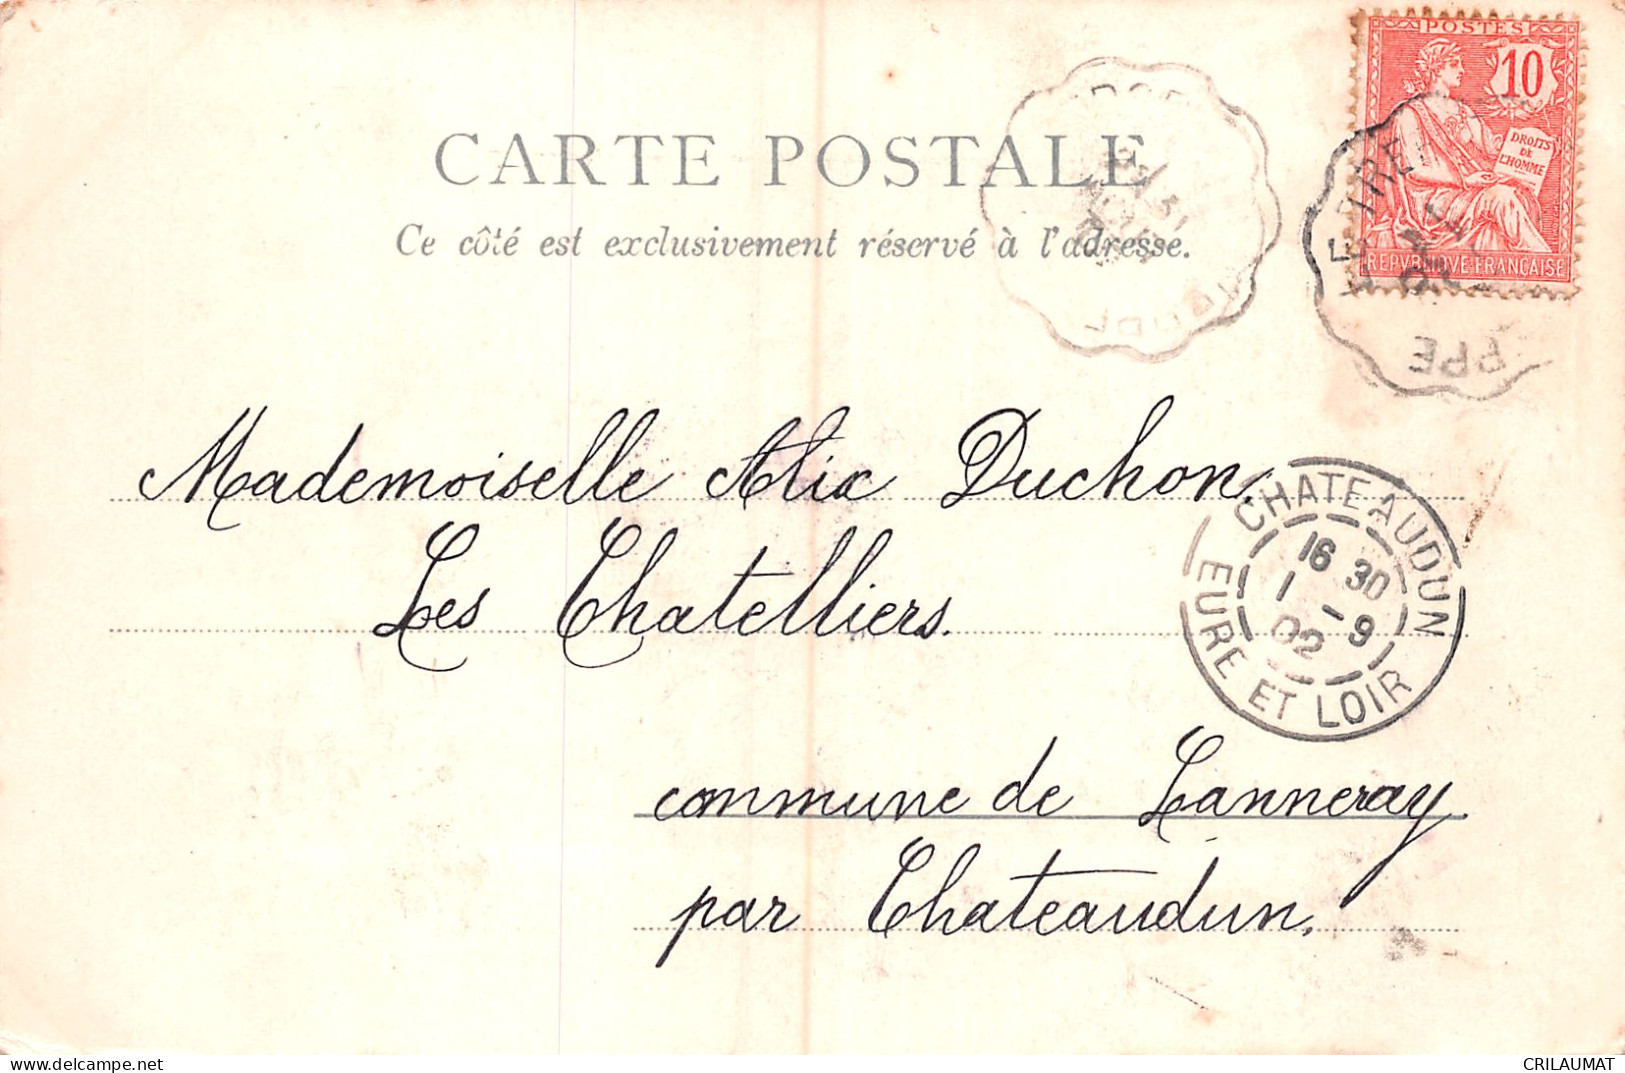 POSTES
10
DROITS
DE
L'HOMME
REPVBLIQVE FRANÇAISE
CARTE POSTALE
Ce côté est exclusivement réservé à l'adresse.
PPE
Mademoiselle Alix Duchon.
Les Chatelliers.
CHATEAUDUN
16 30
1 - 9
02
EURE ET LOIR
commune de Lanneray.
par Chateaudun.
www.delcampe.net
CRILAUMAT